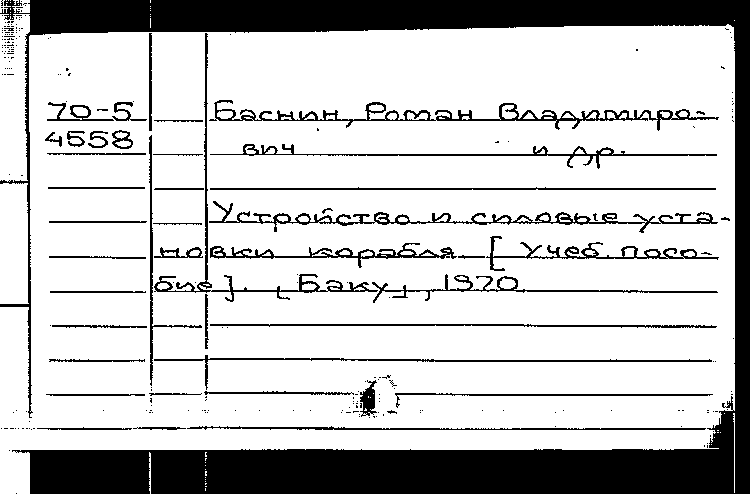 70-5 Баснин, Роман Владимиро-
4558 вич и др.
Устройство и силовые уста-
новки корабля. [Учеб. посо-
бие]. ⌊Баку⌋, 1970